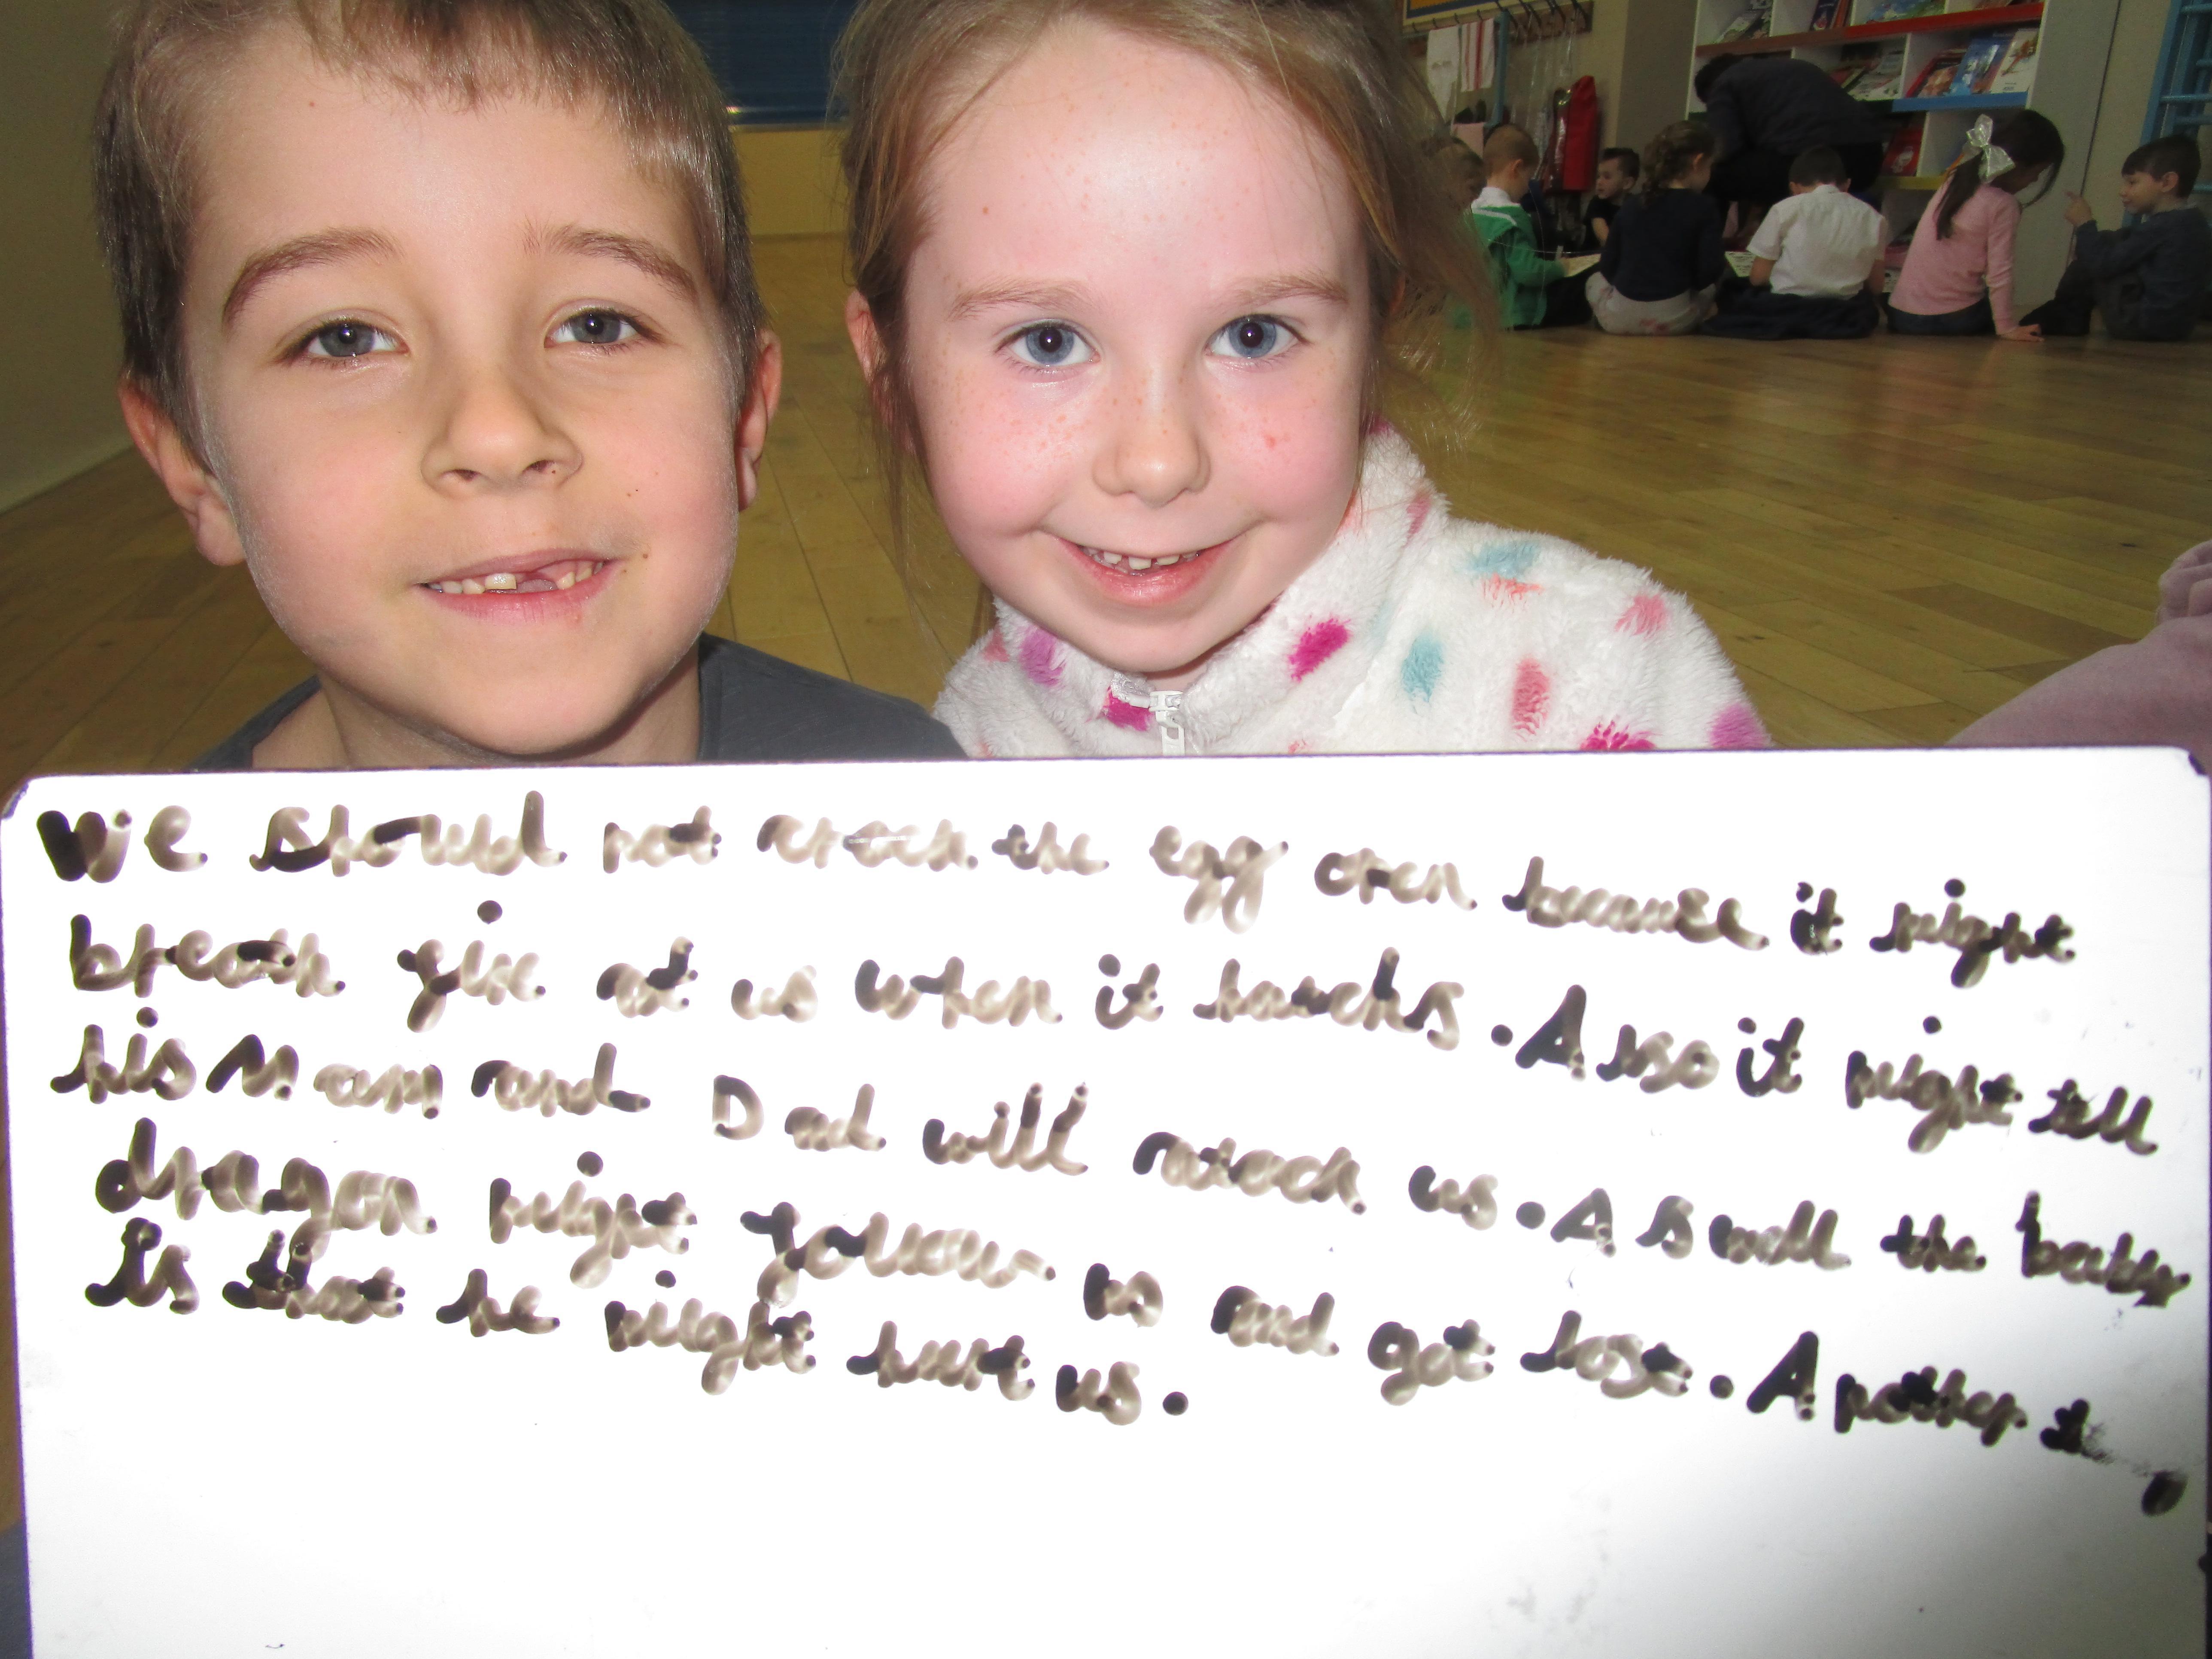 We should not crack the egg open because it might
breath fire at us when it hawchs. Also it might tell
his Mam and Dad will atack us. As well the baby
dragon might follow us and get lost. Another
is that he might hurt us.